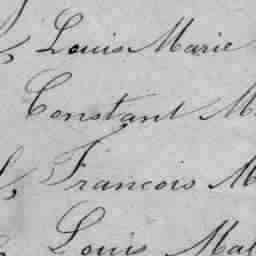 Louis Marie
Constant M
Francois M
Louis Mat